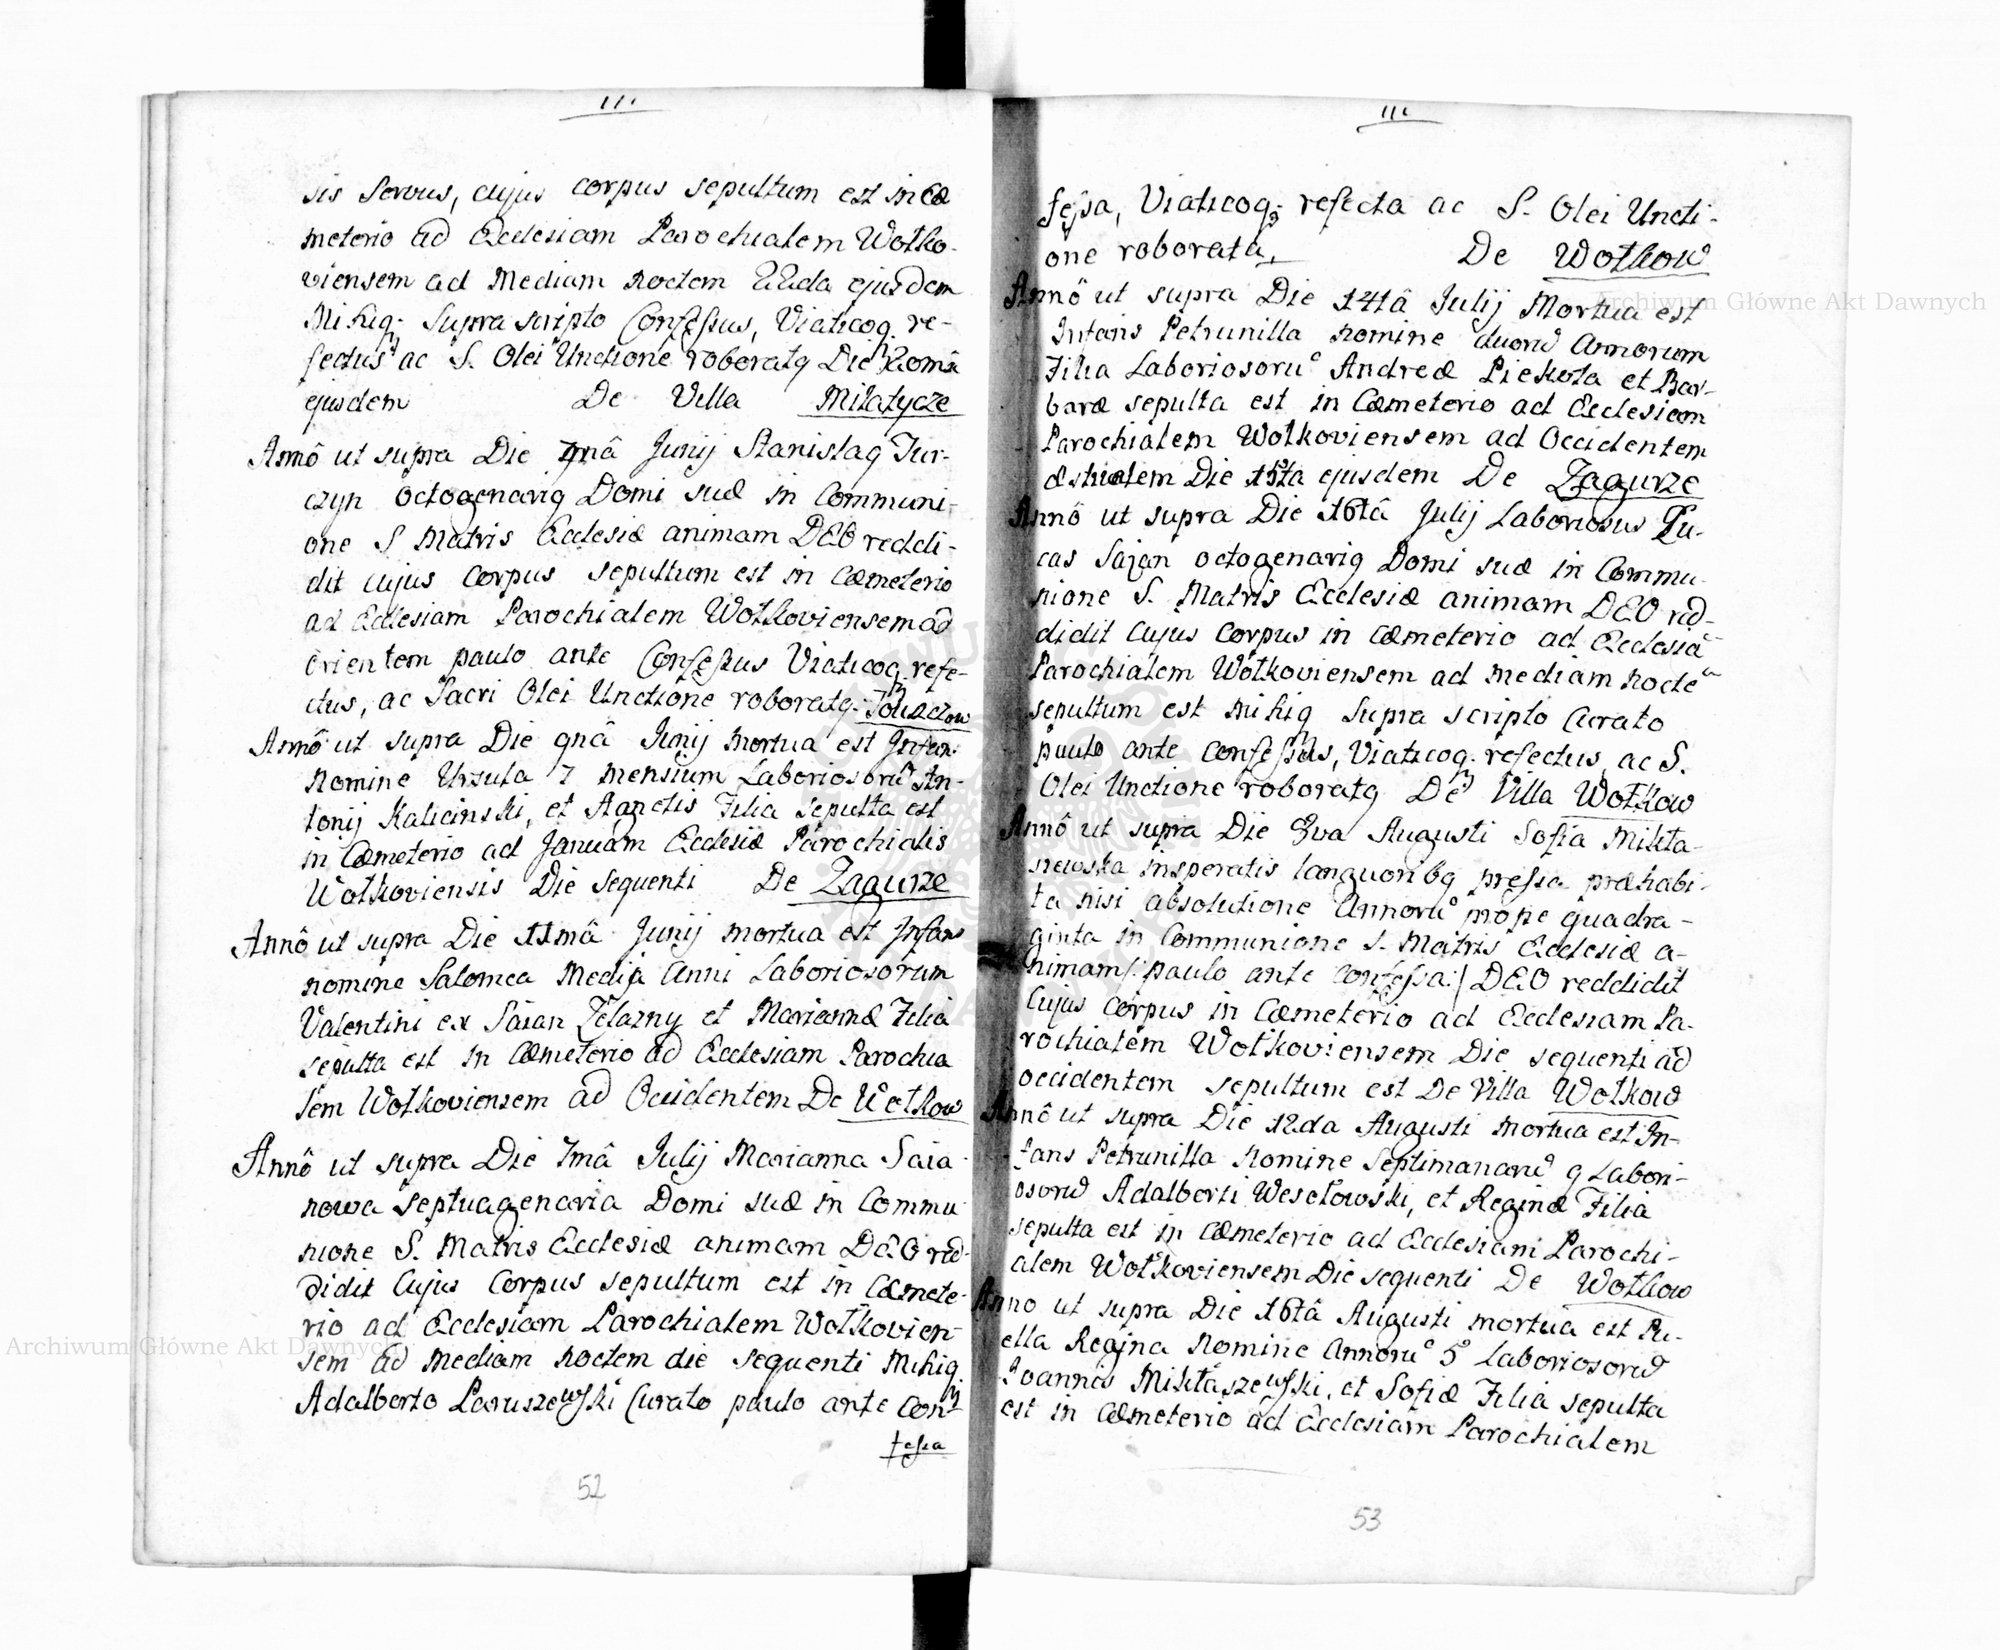 111.
sis servus, cujus corpus sepultum est in Cæ
meterio ad Ecclesiam Parochialem Wołko-
viensem ad Mediam noctem 22da ejusdem
Mihiq; supra scripto Confessus, Viaticoq; re-
fectus ac S. Olei Unctione roboratq Die
ejusdem De Villa Miłatycze
Annô ut supra Die Junij Stanislaq Tur-
czyn octogenariq Domi suæ in Communi-
one S Matris Ecclesiæ animam DEO reddi-
dit cujus corpus sepultum est in Cæmeterio
ad Ecclesiam Parochialem Wołkoviensem ad
Orientem paulo ante Confessus Viaticoq; refe-
ctus, ac Sacri Olei Unctione roboratq. Tołszczow
Annô ut supra Die 9nâ Junij mortua est Infans
nomine Urzula 7 mensium Laboriosorũ An-
tonij Kalicinski, et Agnetis Filia sepulta est
in Cæmeterio ad Januam Ecclesiæ Parochialis
Wołkoviensis Die sequenti De Zagurze
Annô ut supra Die 11mâ Junij mortua est Infans
nomine Salomea Medij Anni Laboriosorum
Valentini ex Saian Zelazny et Mariannæ Filia
sepulta est in Cæmeterio ad Ecclesiam Parochia
lem Wołkoviensem ad Occidentem De Wołkow
Annô ut supra Die 7mâ Julij Marianna Saia
nowa septuagenaria Domi suæ in Commu
nione S. Matris Ecclesiæ animam DEO red-
didit Cujus Corpus sepultum est in Cæmete-
rio ad Ecclesiam Parochialem Wołkovien-
sem ad mediam noctem die sequenti Mihiq;
Adalberto Paruszewski Curato paulo ante Con-
fessa
52
111.
fessa, Viaticoq; refecta ac S. Olei Uncti-
one roborata, De Wołkow
Annô ut supra Die 14tâ Julij Mortua est
Infans Petrunilla nomine duorũ Annorum
Filia Laboriosorũ Andreæ Piekota et Bar-
baræ sepulta est in Cæmeterio ad Ecclesiam
Parochialem Wołkoviensem ad Occidentem
æstivalem Die 15ta ejusdem De Zagurze
Annô ut supra Die 16tâ Julij Laboriosus Lu-
cas Sajan octogenariq Domi suæ in Commu-
nione S. Matris Ecclesiæ animam DEO red-
didit Cujus Corpus in Cæmeterio ad Ecclesiã
Parochialem Wołkoviensem ad mediam noctẽ
sepultum est mihiq supra scripto Curato
paulo ante confessus, Viaticoq; refectus, ac S.
Olei Unctione roboratq De Villa Wołkow
Annô ut supra Die 2va Augusti Sofia Mikta-
szewska insperatis languoribq pressa præhabi-
ta nisi absolutione Annorũ prope quadra-
ginta in Communione S. Matris Ecclesiæ a-
nimam /: paulo ante confessa :/ DEO reddidit
Cujus Corpus in Cæmeterio ad Ecclesiam Pa-
rochialem Wołkoviensem Die sequenti ad
occidentem sepultum est De Villa Wołkow
Annô ut supra Die 12da Augusti mortua est In-
fans Petrunilla Nomine Septimanarũ 9 Labori-
osorũ Adalberti Wesołowski, et Reginæ Filia
sepulta est in Cæmeterio ad Ecclesiam Parochi-
alem Wołkoviensem Die sequenti De Wołkow
Anno ut supra Die 16tâ Augusti mortua est Pu-
ella Regina Nomine Annorũ 5 Laboriosorũ
Joannis Miktaszewski, et Sofiæ Filia sepulta
est in Cæmeterio ad Ecclesiam Parochialem
53
Archiwum Główne Akt Dawnych
Archiwum Główne Akt Dawnych